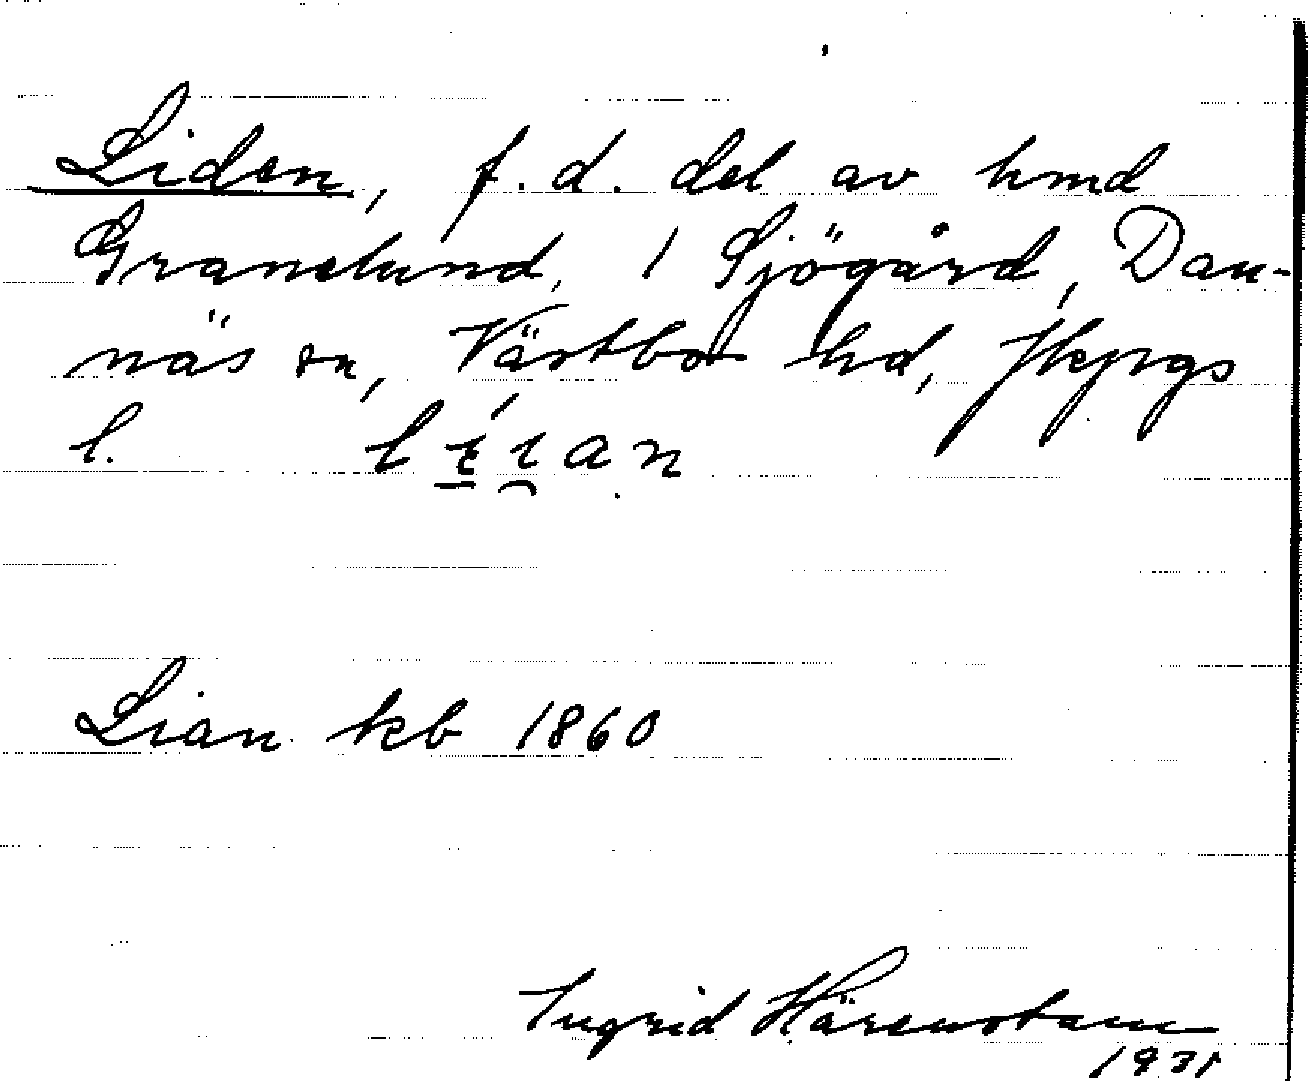 Liden, f.d. del av hmd
Granelund, 1 Sjögård, Dan-
näs sn, Västbo hd, Jkpgs
l.
Lian kb 1860
Ingrid Härenstam
1931